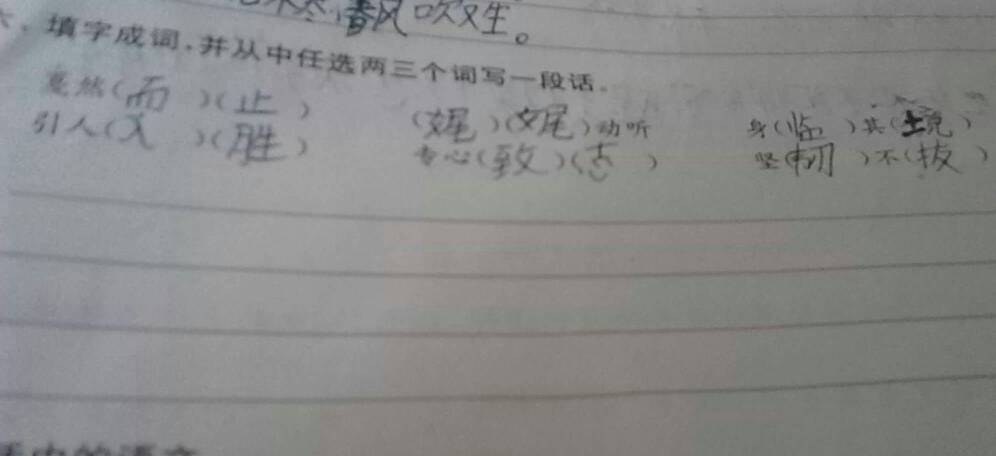 春风吹又生。
六、填字成词,并从中任选两三个词写一段话。
戛然(而)(止) (娓)(娓)动听 身(临)其(境)
引人(入)(胜) 专心(致)(志) 坚(韧)不(拔)